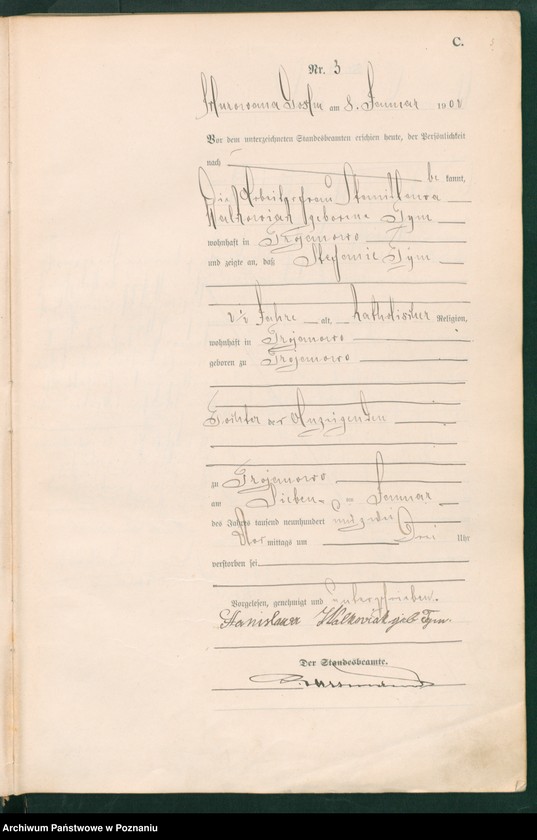 C.
Nr. 3
Murowana Goslin am 8. Januar 1902
Vor dem unterzeichneten Standesbeamten erschien heute, der Persönlichkeit
nach
be kannt,
Die Arbeiterfrau Stanislawa
Walkowiak geborene Tym
wohnhaft in Trojanowo
und zeigte an, daß Stefanie Tym
2 1/2 Jahre alt, katholischer Religion,
wohnhaft in Trojanowo
geboren zu Trojanowo
Tochter der Anzeigenden
zu Trojanowo
am Sieben- = Januar
des Jahres tausend neunhundert und zwei
Vor mittags um Drei Uhr
verstorben sei
Vorgelesen, genehmigt und unterschrieben.
Stanislawa Walkowiak geb Tym.
Der Standesbeamte.
Archiwum Państwowe w Poznaniu